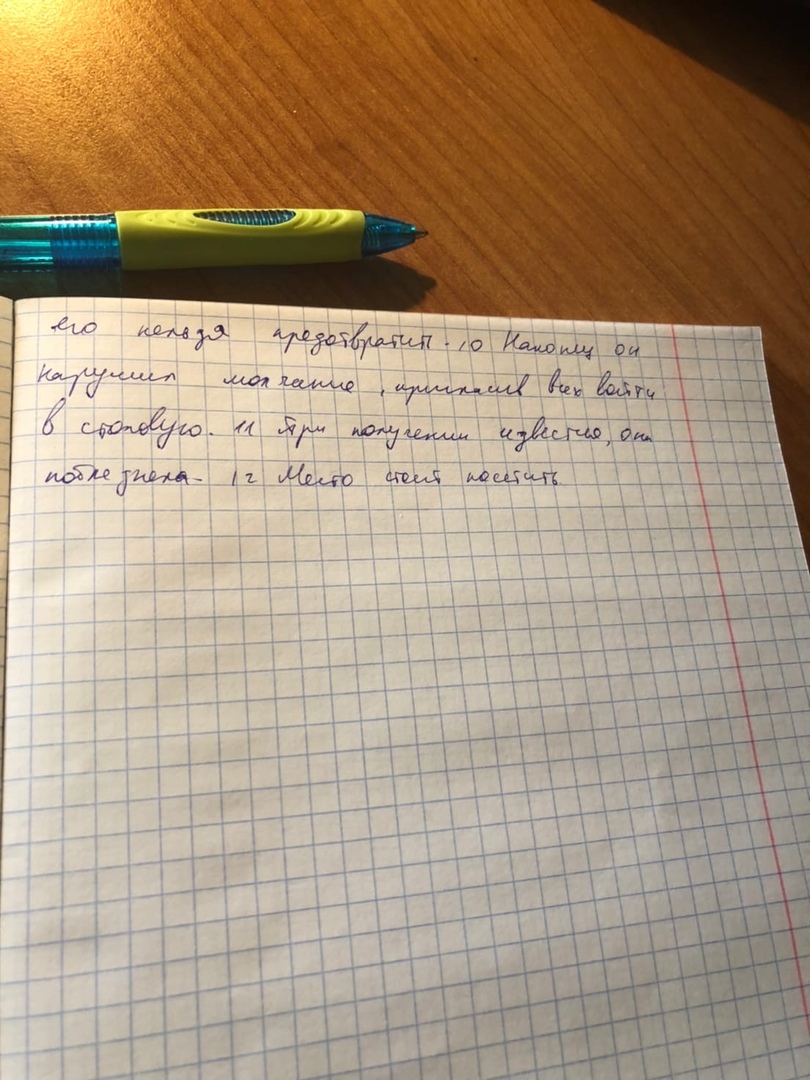 его нельзя предотвратить. 10 Наконец он
нарушил молчание, пригласив всех войти
в столовую. 11 При получении известия, она
побледнела. 12 Место стоит посетить